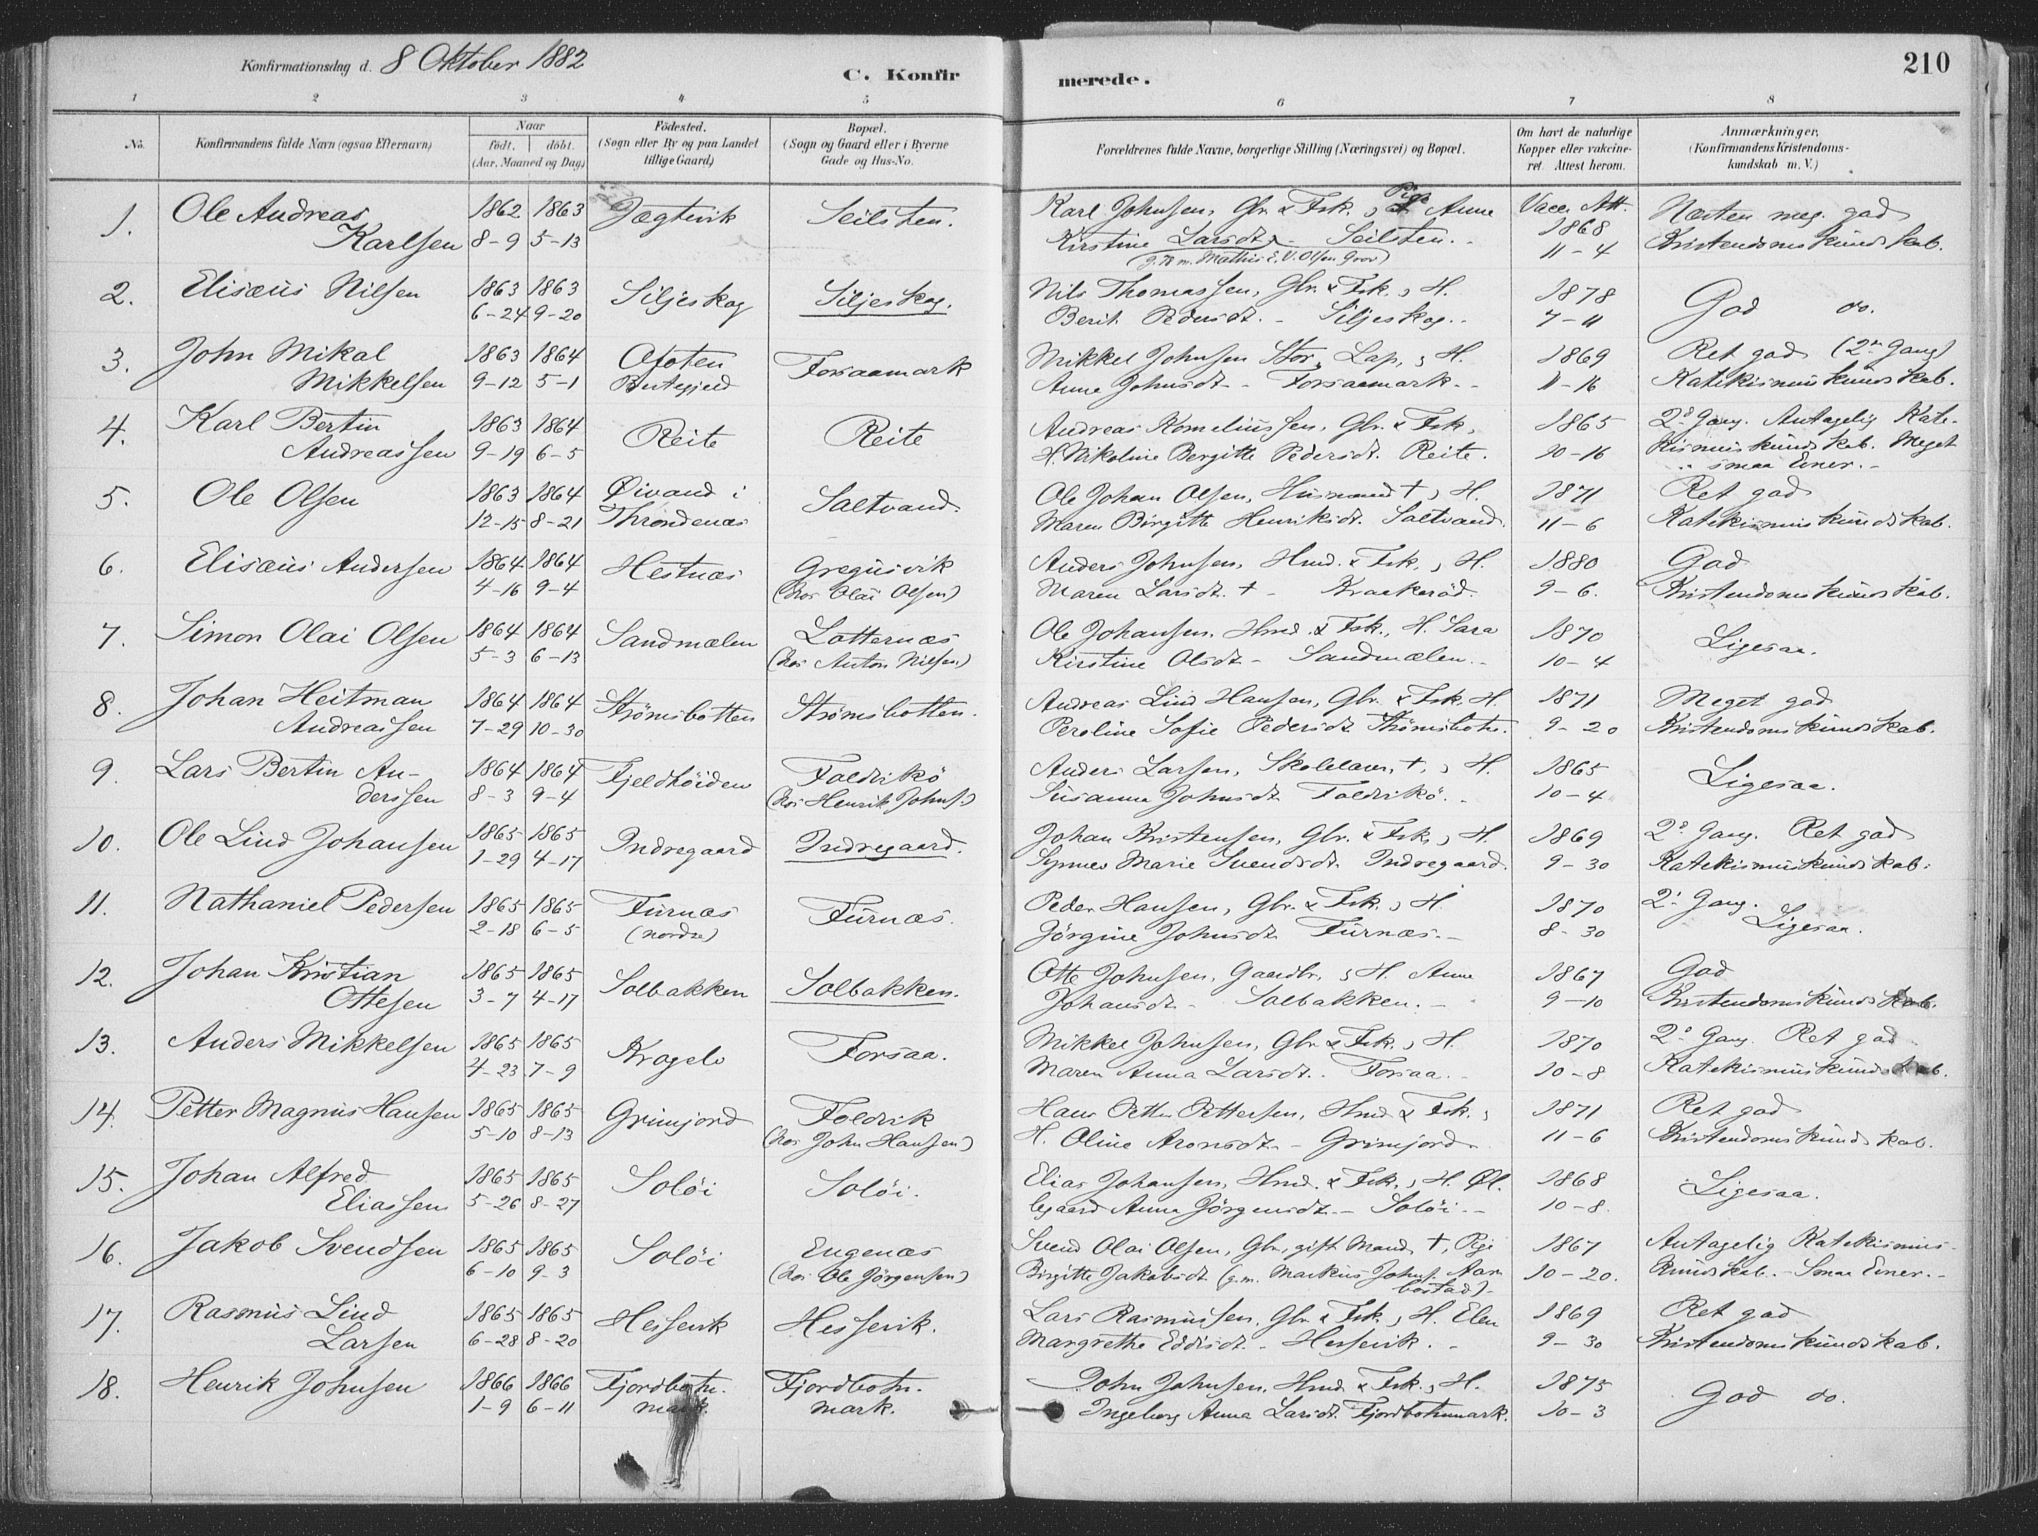 Konfirmationsdag d. 8 Oktober 1882
C. Konfirmerede.
210
1 2 3 4 5 6 7 8
No. Konfirmandens fulde Navn (ogsaa Efternavn)
Naar født. døbt. (Aar, Maaned og Dag)
Fødested. (Sogn eller By og paa Landet tillige Gaard)
Bopæl. (Sogn og Gaard eller i Byerne Gade og Hus-No.
Forældrenes fulde Navne, borgerlige Stilling (Næringsvei) og Bopæl.
Om havt de naturlige Kopper eller vakcineret. Attest herom.
Anmærkninger. (Konfirmandens Kristendomskundskab m. V.)
1. Ole Andreas 1862 1863 Jægtvik Seilsten. Karl Johnsen, Gbr. & Fsk., Pige Anne Vacc. Att. 1868 Næsten meg. god
Karlsen 8-9 5-13 Kirstine Larsdt. Seilsten. 11-4 Kristendomskundskab.
(g. 78 m. Mathis E. V. Olsen Grov)
2. Elisæus Nilsen 1863 1863 Siljeskog Siljeskog. Nils Thomassen, Gbr. & Fsk., H. 1878 God do.
6-24 9-20 Berit Pedersdt. Siljeskog. 7-11
3. John Mikal 1863 1864 Ofoten Forsaamark Mikkel Johnsen Stor, Lap., H. 1869 Ret god (2n Gang)
Mikkelsen 9-12 5-1 Anne Johnsdt. Forsaamark. 11-16 Katekismuskundskab.
4. Karl Bertin 1863 1864 Reite Reite Andreas Korneliussen, Gbr. & Fsk., 1865 2d Gang. Antagelig Kate-
Andreassen 9-19 6-5 H. Nikoline Bergitte Pedersdt. Reite. 10-16 kismuskundskab. Meget
smaa Evner.
5. Ole Olsen 1863 1864 Øivand i Saltvand. Ole Johan Olsen, Husmand †, H. 1871 Ret god
12-15 8-21 Throndenæs Maren Birgitte Henriksdt. Saltvand. 11-6 Katekismuskundskab.
6. Elisæus Andersen 1864 1864 Hestnæs Gregusvik Anders Johnsen, Hmd. & Fsk., H. 1880 God
4-16 9-4 (hos Olai Olsen) Maren Larsdt. † Kraakerød. 9-6. Kristendomskundskab.
7. Simon Olai Olsen 1864 1864 Sandmælen Lotternæs Ole Johansen. Hmd. & Fsk., H. Sara 1870 Ligesaa.
5-3 6-13 (hos Anton Nilsen) Kirstine Olsdt. Sandmælen. 10-4
8. Johan Heitman 1864 1864 Strømsbotten Strømsbotten. Andreas Lind Hansen, Gbr. & Fsk. H. 1871 Meget god
Andreassen 7-29 10-30 Peroline Sofie Pedersdt. Strømsbotn. 9-20 Kristendomskundskab.
9. Lars Bertin An- 1864 1864 Fjeldhøiden Foldvikø Anders Larsen, Skolelærer, †, H. 1865 Ligesaa.
derssen 8-3 9-4 (hos Henrik Johns.) Susanna Johnsdt. Foldvikø. 10-4
10. Ole Lind Johansen 1865 1865 Indregaard Indregaard. Johan Kristensen, Gbr. & Fsk., H. 1869 2d Gang. Ret god
1-29 4-17 Synnev Marie Svendsdt. Indregaard. 9-30 Katekismuskundskab.
11. Nathaniel Pedersen 1865 1865 Furnæs Furnæs. Peder Hansen, Gbr. & Fsk., H. 1870 2d Gang.
2-18 6-5 (nordre) Jørgine Johnsdt. Furnæs. 8-30 Ligesaa.
12. Johan Kristian 1865 1865 Solbakken Solbakken. Otte Johnsen, Gaardbr., H. Anne 1867 God
Ottesen 3-7 4-17 Johansdt. Solbakken. 9-10 Kristendomskundskab.
13. Anders Mikkelsen 1865 1865 Krogelv Forsaa. Mikkel Johnsen, Gbr. & Fsk., H. 1870 2d Gang. Ret god
4-23 7-9 Maren Anna Larsdt. Forsaa. 10-8 Katekismuskundskab.
14. Petter Magnus Hansen 1865 1865 Grimjord Foldvik Hans Petter Pettersen, Hmd & Fsk., 1871 Ret god
5-10 8-13 (hos John Hansen) H. Oline Aronsdt. Grimjord. 11-6 Kristendomskundskab.
15. Johan Alfred 1865 1865 Soløi Soløi. Elias Johansen, Hmd. & Fsk., H. Øl- 1868 Ligesaa.
Eliassen 5-26 8-27 legaard Anna Jørgensdt. Soløi. 10-8.
16. Jakob Svendsen 1865 1865 Soløi Engenæs Svend Olai Olsen, Gbr., gift Mand, †, Pige 1867 Antagelig Katekismus-
6-10 9-3 (hos Ole Jørgensen) Birgitte Jakobsdt. (g. m. Markus Johns. Aar 10-20. kundskab. Smaa Evner.
bostad)
17. Rasmus Lind 1865 1865 Hessevik Hessevik. Lars Rasmussen, Gbr. & Fsk., H. Elen 1869 Ret god
Larsen 6-28 8-20 Margrethe Eddisdt. Hessevik. 9-30 Kristendomskundskab.
18. Henrik Johnsen 1866 1866 Fjordbotn- Fjordbotn- John Johnsen, Hmd & Fsk., H. 1875 God do.
1-9 6-11 mark. mark. Ingeborg Anna Larsdt. Fjordbotnmark. 10-3